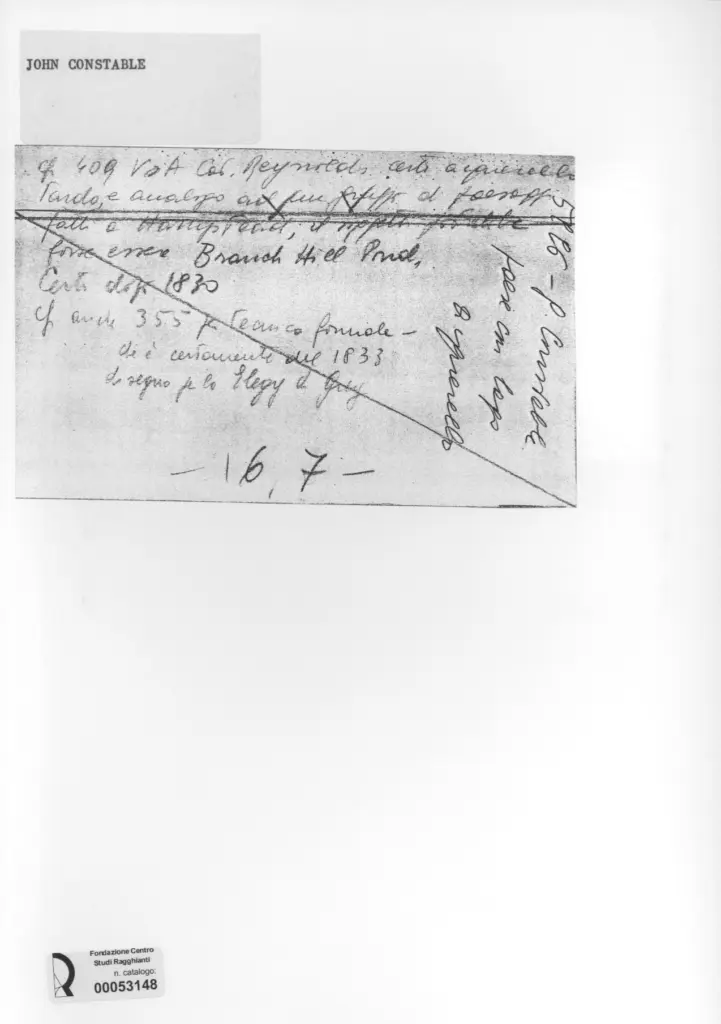 JOHN CONSTABLE
cf 409 V&A Cat. Reynolds. certo acquerello
Tardo, e analogo ad un gruppo di paesaggi
fatti a Hampstead, il
forse essere Branch Hill Pond,
Certo dopo 1830
cf anche 355 per Tecnica formale –
che è certamente del 1833
disegno per la Elegy di Gray
– 16,7 –
J. Constable
paese con lago
acquerello
Fondazione Centro
Studi Ragghianti
n. catalogo:
00053148